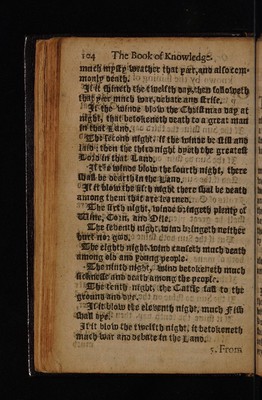 104 The Book of Knowledge.
much mysty weather that year, and also com-
monly death.
If it shineth the twelfth day, then followeth
that year much war, debate and strife.
If the winde blow the Christmas day at
night, that betokeneth death to a great man
in that Land.
The second night: if the winde be still and
laid; then the third night dyeth the greatest
Lord in that Land.
If the winde blow the fourth night, there
shall be dearth in the Land.
If it blow the fifth night there shal be death
among them that are learned.
The sixth night, winde bringeth plenty of
Wine, Corn, and Oile.
The seventh night, wind bringeth neither
hurt nor good.
The eighth night, winde causeth much death
among old and young people.
The ninth night, wind betokeneth much
sicknesse and death among the people.
The tenth night, the Cattle fall to the
ground and dye.
If it blow the eleventh night, much Fish
shall dye.
If it blow the twelfth night, it betokeneth
much war and debate in the Land.
5. From